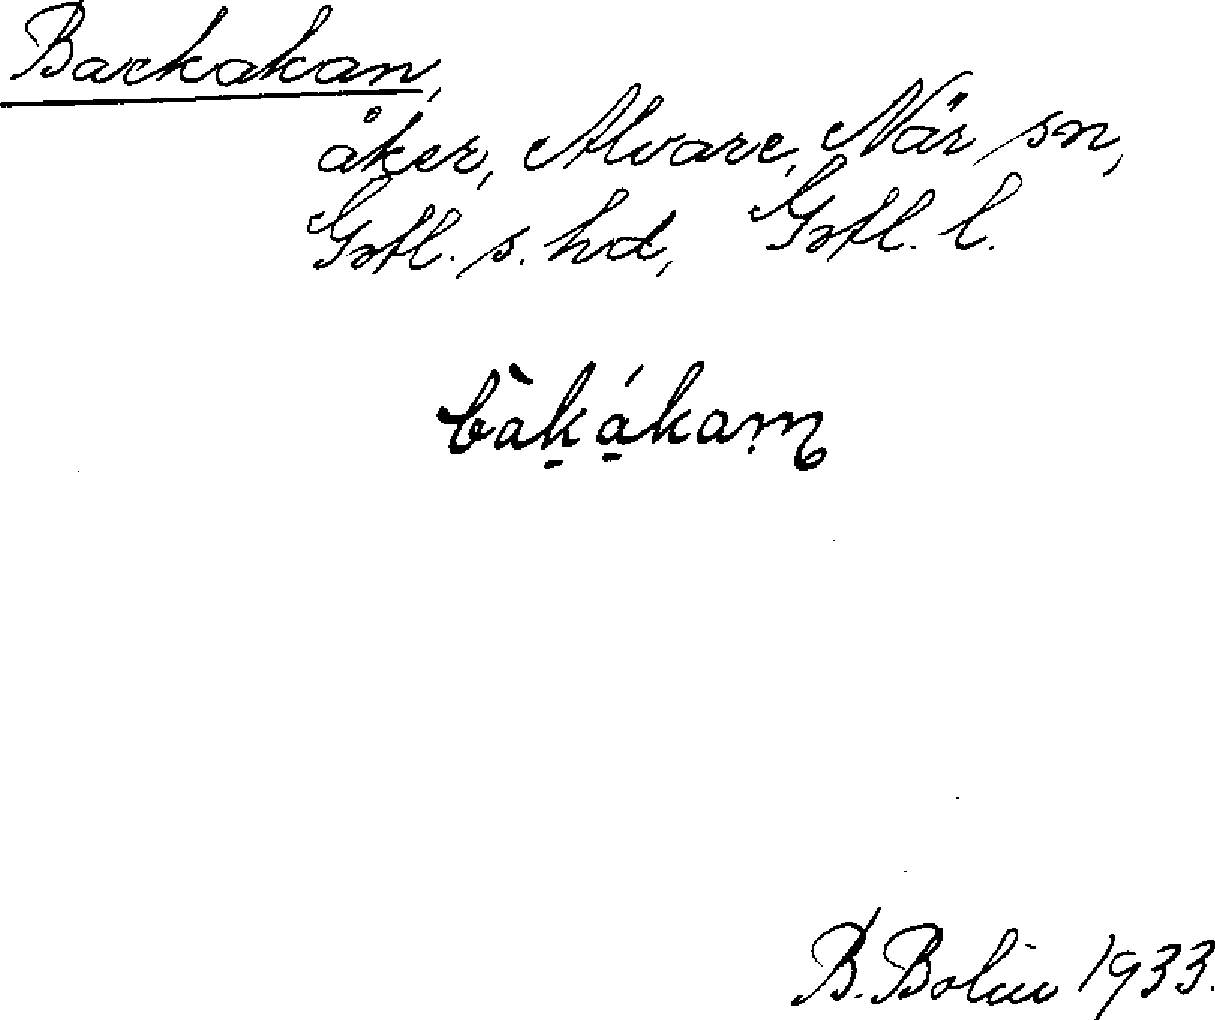 Backakan,
åker, Alvare, När sn,
Gotl. s. hd, Gotl. l.
bàk̠á̠kaṃ
B. Bolin 1933.